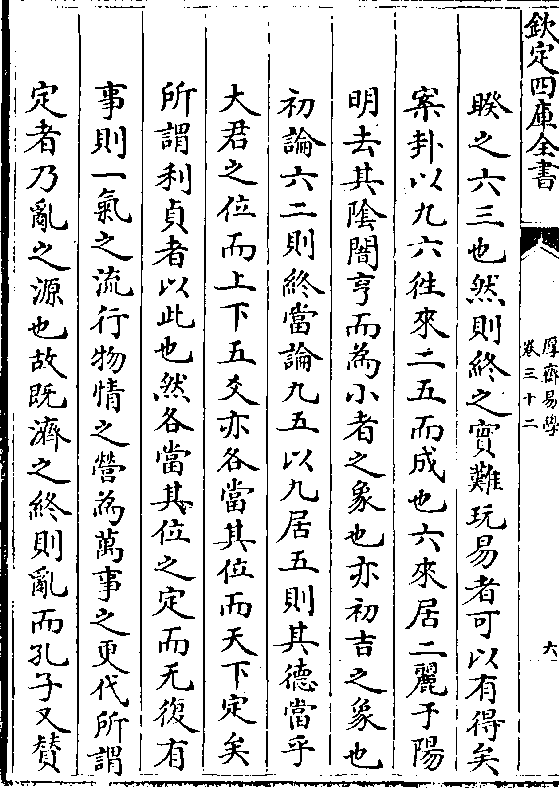 欽定四庫全書
厚齋易學
卷三十二
六
睽之六三也然則終之實難玩易者可以有得矣
案卦以九六徃來二五而成也六來居二麗于陽
明去其陰闇亨而為小者之象也亦初吉之象也
初論六二則終當論九五以九居五則其德當乎
大君之位而上下五爻亦各當其位而天下定矣
所謂利貞者以此也然各當其位之定而无復有
事則一氣之流行物情之營為萬事之更代所謂
定者乃亂之源也故既濟之終則亂而孔子又賛